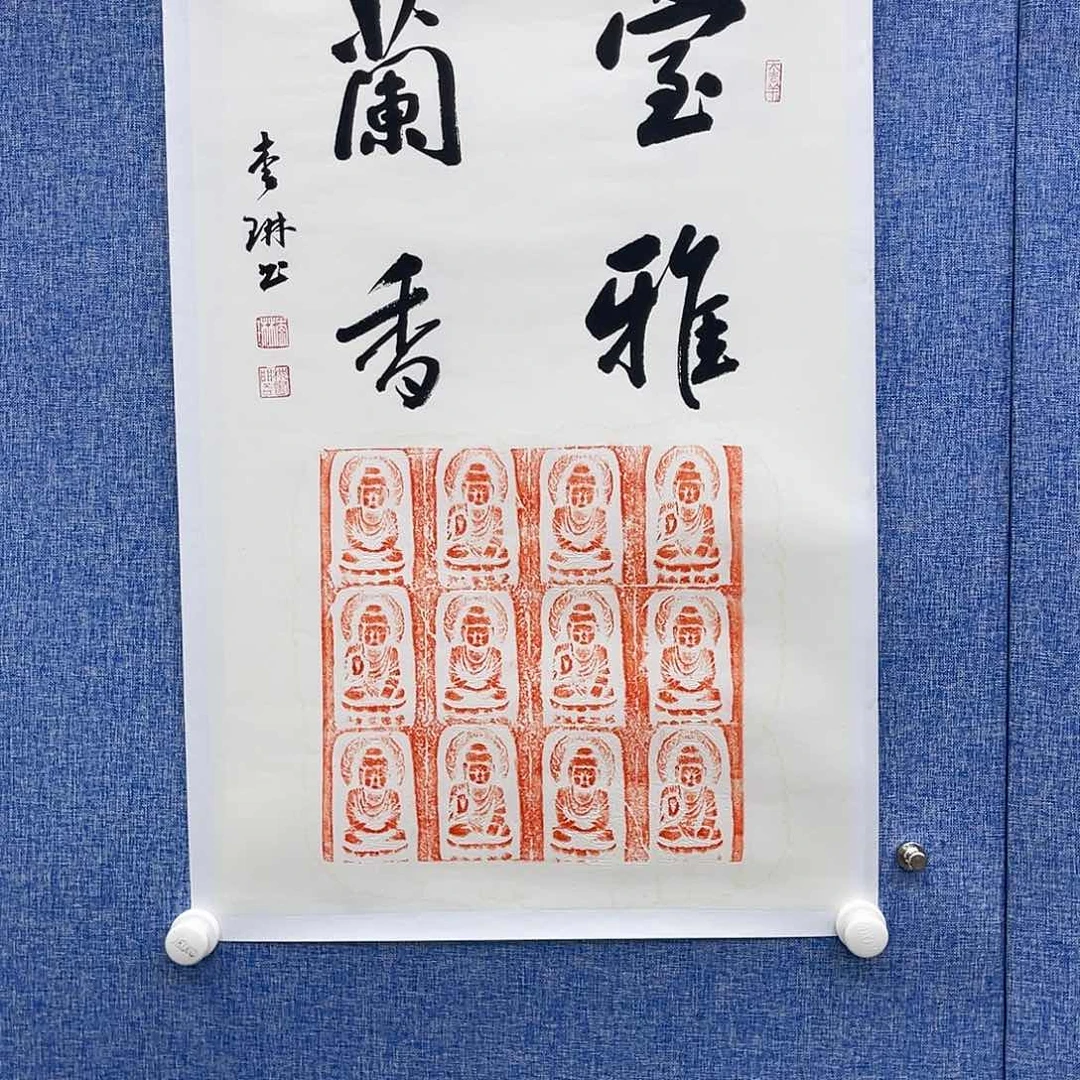 室雅
蘭香
李琳书